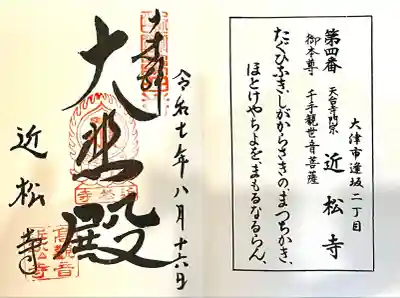 大津市逢坂二丁目
第四番 天台寺門宗 近松寺
御本尊 千手観世音菩薩
たぐひふきしがからさきの、まつちかき、
ほとけやちよを、まもるなるらん、
令和七年八月十六日
大悲殿
近松寺